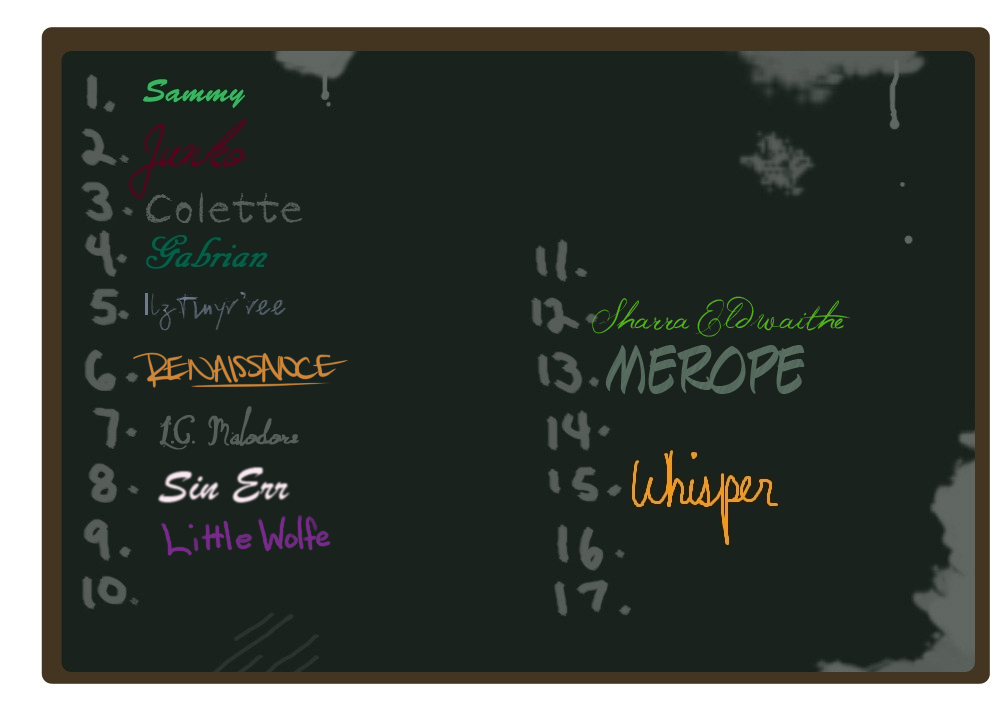 1. Sammy
2. Junko
3. Colette
4. Gabrian
5. Ilz Tinyr'vee
6. RENAISSANCE
7. L.C. Malodore
8. Sin Err
9. Little Wolfe
10.
11.
12. Sharra Eldwaithe
13. MEROPE
14.
15. Whisper
16.
17.